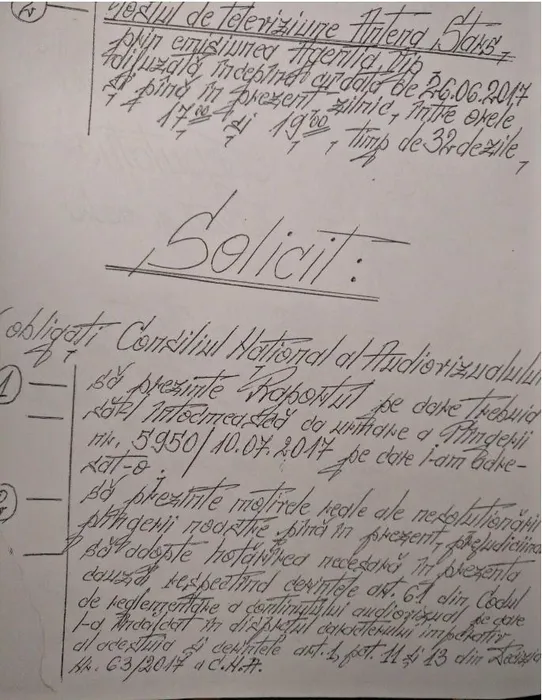 2
Postul de televiziune Antena Stars,
prin emisiunea Agenția VIP
difuzată începînd cu data de 26.06.2017
și pînă în prezent, zilnic, între orele
17⁰⁰ și 19⁰⁰, timp de 32 de zile,
Solicit:
obligați Consiliul Național al Audiovizualului
1
să prezinte Raportul pe care trebuia
să-l întocmească ca urmare a Plîngerii
nr. 5950/10.07.2017 pe care i-am adre-
sat-o.
2
să prezinte motivele reale ale nesoluționării
plîngerii noastre pînă în prezent, prejudiciind
să adopte hotărîrea necesară în prezenta
cauză respectînd cerințele art. 61 din Codul
de reglementare a conținutului audiovizual, pe care
l-a încălcat în disprețul caracterului imperativ
al acestuia și cerințele art. 1, pct. 11 și 13 din Decizia
Nr. 63/2017 a C.N.A.